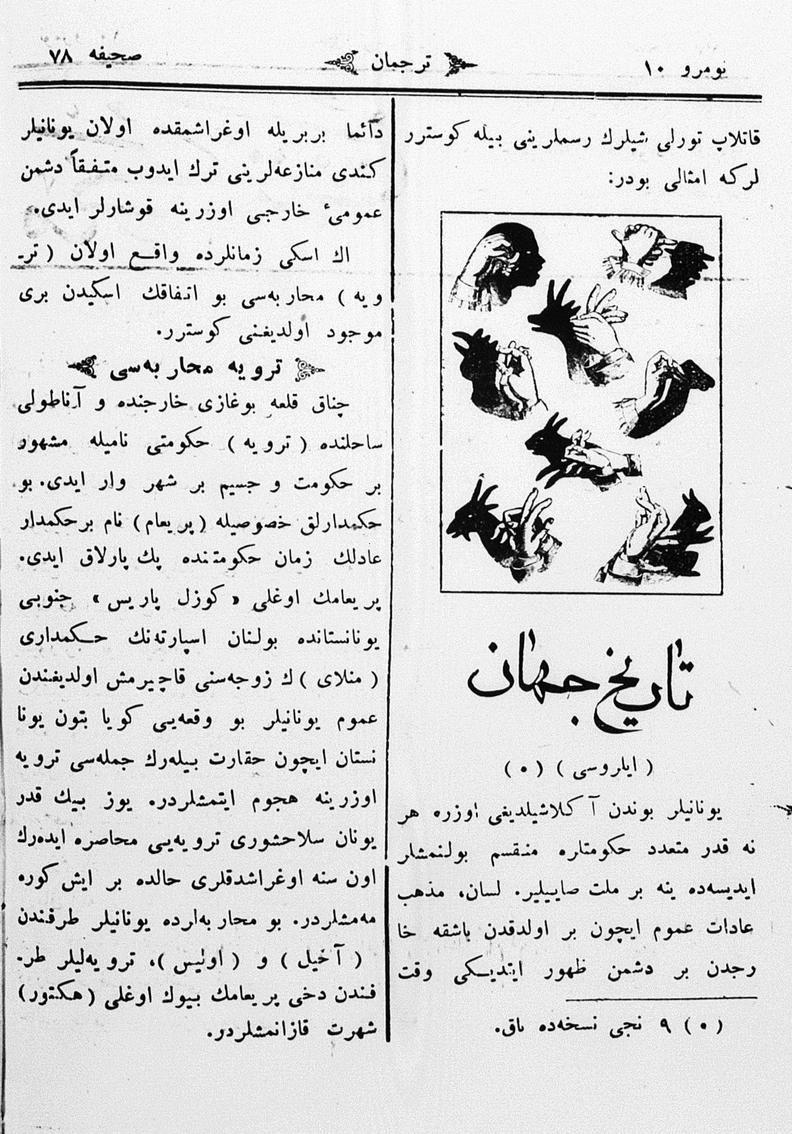 نومرو ١٠
ترجمان
صحیفه ٧٨
قاتلاپ تورلی شیلرك رسملرینی بیله كوسترر
لركه امثالی بودر:
تاریخ جهان
( ایلروسی ) (٠)
یونانیلر بوندن آ كلاشیلدیغی اوزره هر
نه قدر متعدد حكومتلره منقسم بولنمشلر
ایدیسه‌ده ینه بر ملت صاییلیر. لسان، مذهب
عادات عموم ایچون بر اولدقدن باشقه خا
رجدن بر دشمن ظهور ایتدیـكی وقت
(٠) ٩ نجی نسخه‌ده باق.
دآئما بربریله اوغراشمقده اولان یونانیلر
كـندی منازعه‌لرینی ترك ایدوب متـفـقاً دشمن
عمومیٔ خارجی اوزرینه قوشارلر ایدی.
اك اسكی زمانلرده واقـع اولان ( تر-
ویه ) محاربه‌سی بو اتـفاقك اسكیدن بری
موجود اولدیغنی كوسترر.
ترویه محاربه‌سی
چناق قلعه بوغازی خارجنده و آناطولی
ساحلنده ( ترویه ) حكومتی نامیله مشهور
بر حكومت و جسیم بر شهر وار ایدی. بو
حكمدارلق خصوصیله ( پریعام ) نام برحكمدار
عادلك زمان حكومتنده پك پارلاق ایدی.
پریعامك اوغلی « كوزل پاریس » جنوبی
یونانستانده بولـنان اسپارته‌نك حـكمداری
( منلای ) ك زوجه‌سنی قاچیرمش اولدیغندن
عموم یونانیلر بو وقعه‌یی كویا بتون یونا
نستان ایچون حقارت بیله‌رك جمله‌سی ترویه
اوزرینه هجوم ایتمشلردر. یوز بیك قدر
یونان سلاحشوری ترویه‌یی محاصره ایده‌رك
اون سنه اوغراشدقلری حالده بر ایش كوره
مه‌مشلردر. بو محاربه‌لرده یونانیلر طرفندن
( آخیل ) و ( اولیس )، ترویه‌لیلر طر-
فندن دخی پریعامك بیوك اوغلی ( هكتور )
شهرت قازانمشلردر.